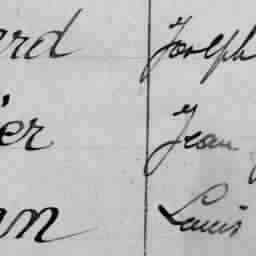 erd Joseph
ier Jean
nn Louis